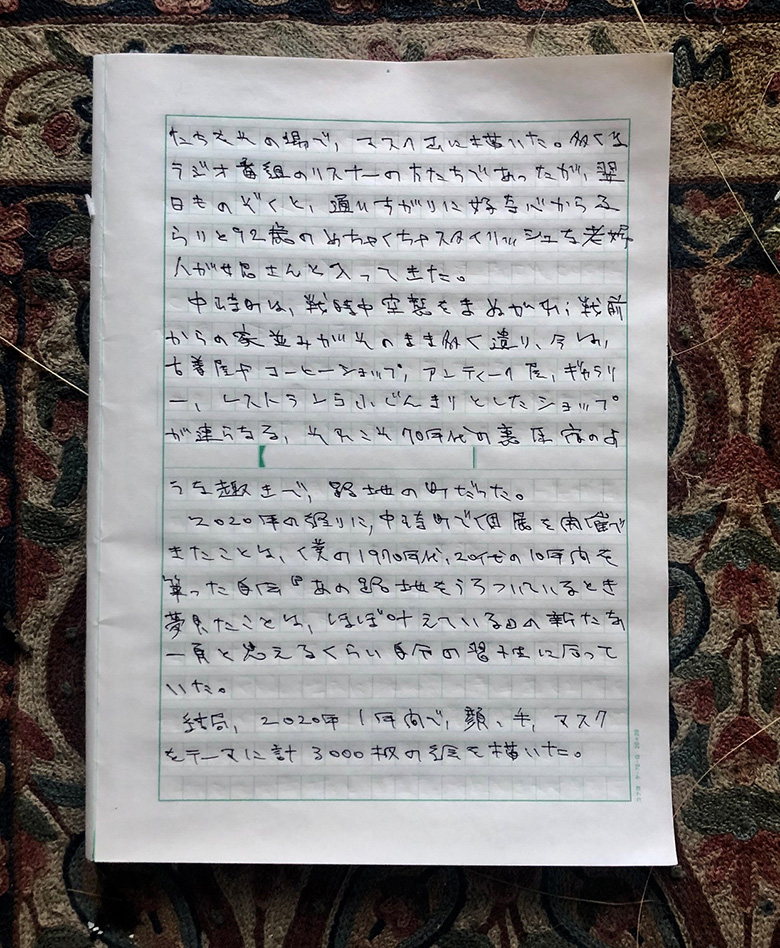 たちをその場で、マスクごしに描いた。多くは
ラジオ番組のリスナーの方たちであったが、翌
日ものぞくと、通りすがりに好奇心からふ
らりと92歳のめちゃくちゃスタイリッシュな老婦
人が娘さんと入ってきた。
中崎町は、戦時中空襲をまぬがれ、戦前
からの家並みがそのまま多く遺り、今は、
古着屋やコーヒーショップ、アンティーク屋、ギャラリ
ー、レストランら小じんまりとしたショップ
が連らなる、それこそ70年代の裏原宿のよ
うな趣きで、路地の町だった。
2020年の終りに、中崎町で個展を開催で
きたことは、僕の1970年代、20代の10年間を
綴った自伝『あの路地をうろついているとき
夢見たことは、ほぼ叶えている』の新たな
一頁と思えるくらい自分の習性に合って
いた。
結局、2020年1年間で、顔、手、マスク
をテーマに計3000枚の絵を描いた。